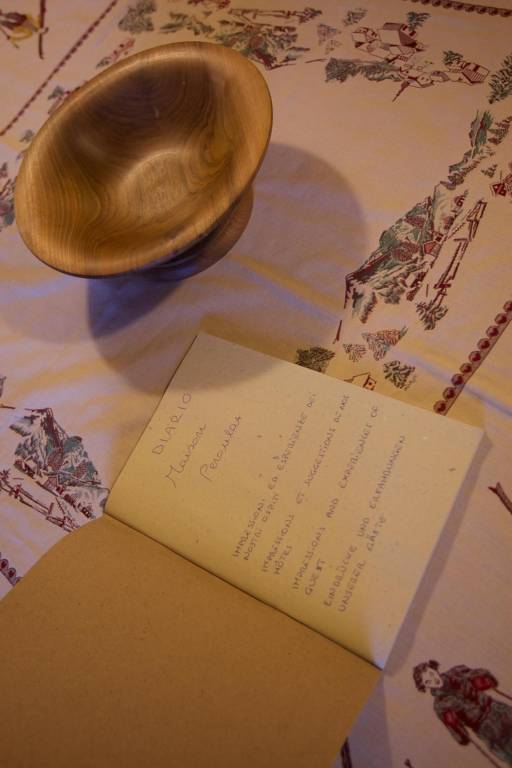 DIARIO
Maison
Perculaz
IMPRESSIONI ED ESPERIENZE DEI
NOSTRI OSPITI
IMPRESSIONS ET SUGGESTIONS DE NOS
HÔTES
IMPRESSIONS AND EXPERIENCES OF
GUEST
EINDRÜCKE UND ERFAHRUNGEN
UNSERER GÄSTE